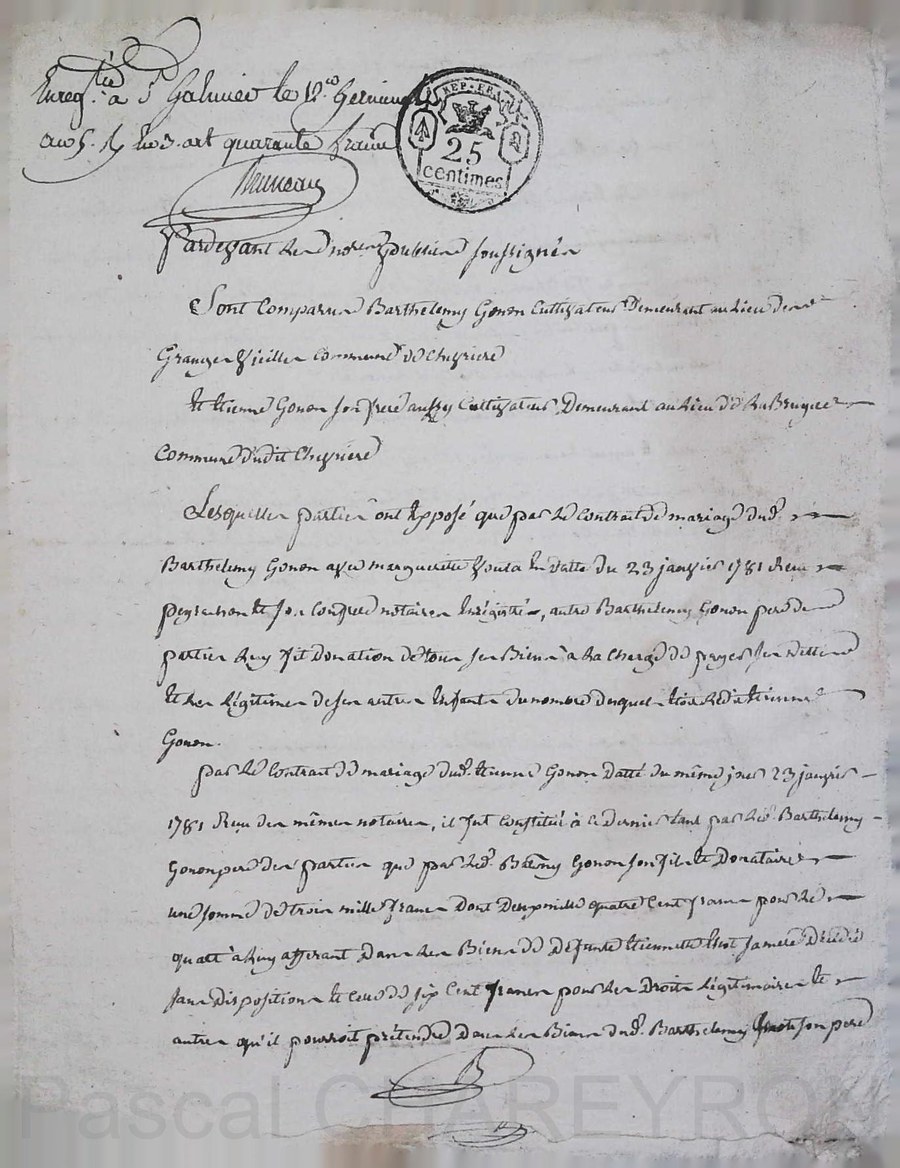 Enreg.tré à St Galmier le 12 Germinal
an 5. quarante francs
REP. FRA.
25
centimes
Pardevant les nores publics soussignés
Sont Comparus Barthelemy Gonon Cultivateur Demeurant au Lieu des
Granges Vieilles Commune de Chevrieres
Et Etienne Gonon son frere aussy Cultivateur, Demeurant au Lieu de La Bruyere
Commune dudit Chevrieres
Lesquelles parties ont Exposé que par Le Contrat de mariage dud.
Barthelemy Gonon avec margueritte en datte du 23 janvier 1781 Recu
peyrenon et son Confrere notaires Enregistré, autre Barthelemy Gonon pere des
parties Luy fit Donation de tous ses Biens à La Charge de payer ses dettes
et Les Légitimes de ses autres Enfants du nombre desquels Etoit Ledit Etienne
Gonon.
par Le Contrat de mariage dud. Etienne Gonon Datté du même jour 23 janvier
1781 Recu des mêmes notaires, il fut Constitué à Ce dernier tant par Led. Barthelemy
Gonon pere des parties que par Led. Bartmy Gonon son fils et Donataire
une somme de trois mille francs Dont Deux mille quatre Cent francs pour Le
quart à Luy afferant Dans Les Biens de Defunte Etiennette sa mere Décédée
sans Disposition et Ceux de six Cent francs pour Les Droits Légitimaires et
autres qu'il pourroit prétendre Dans Les Biens dud. Barthelemy son pere
Pascal CHAREYRON